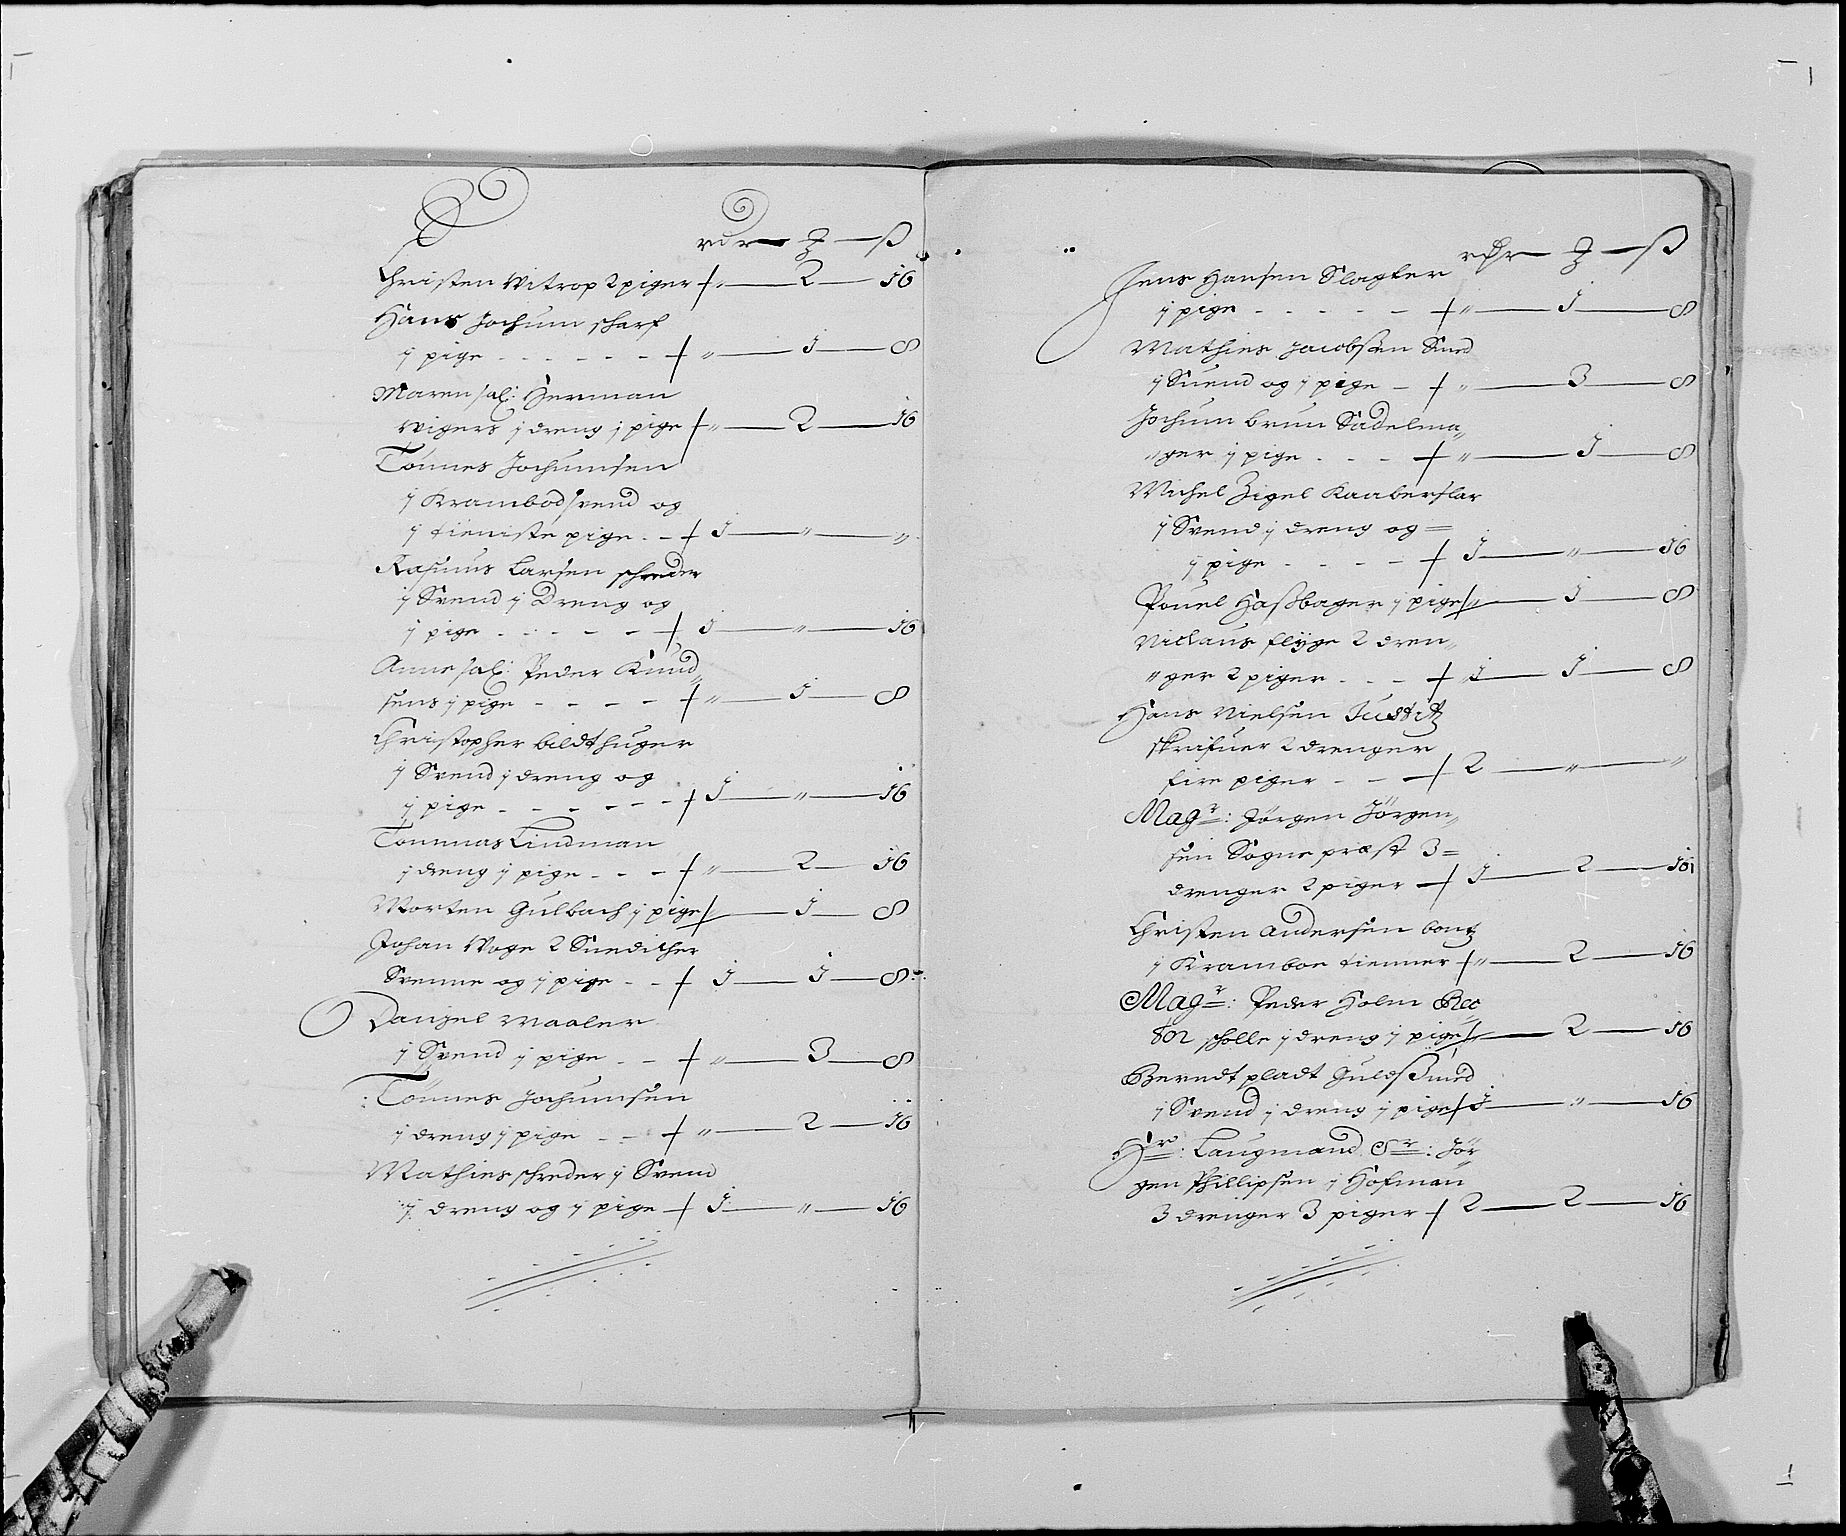 rdr — ʒ — ß
Christen Vitrop 2 piger + „ — 2 — 16
Hans Jochum scharf
j pige - - - - - + „ — 1 — 8
Maren sal: Herman
Vigers j dreng j pige + „ — 2 — 16
Tönnes Jochumsen
j Krambodsvend og
j tieniste pige - - + 1 — „ — „
Rasmus Larsen schreder
j Svend j Dreng og
j pige - - - - - + 1 — „ — 16
Anne sal: Peder Knud„
sens j pige - - - - + „ — 1 — 8
Christopher bildthuger
j Svend j dreng og
j pige - - - - - - + 1 — „ — 16
Tommas Lindman
j dreng j pige - - - + „ — 2 — 16
Morten Gulbach j pige + „ — 1 — 8
Johan Woge 2 Snedicher
Svenne og j pige - - + 1 — 1 — 8
Daniel Maaler
j Svend j pige - - + „ — 3 — 8
Tönnes Jochumsen
j dreng j pige - - + „ — 2 — 16
Mathies schreder j Svend
j dreng og j pige + 1 — „ — 16
rdr — ʒ — ß
Jens Hansen Slagter
j pige - - - - - + „ — 1 — 8
Mathies Jacobsen Smed
j Suend og j pige - + „ — 3 — 8
Jochum brun Sadelma„
„ger j pige - - - + „ — 1 — 8
Michel Zigel Kaaberslar
j Svend j dreng og =
j pige - - - - + 1 — „ — 16
Pouel Hasbager j pige + „ — 1 — 8
Niclaus flyge 2 dren„
„ger 2 piger - - - + 1 — 1 — 8
Hans Nielsen Justitz
skrifuer 2 drenger
fire piger - - + 2 — „ — „
Magr: Jörgen Jörgen„
sen Sogne præst 3 =
drenger 2 piger + 1 — 2 — 16
Christen Andersen bontz
j Kramboe tienner + „ — 2 — 16
Magr: Peder Holm Rec„
tor scholle j dreng j pige + „ — 2 — 16
Berndt pladt Guldsmed
j Svend j dreng j pige + 1 — „ — 16
Hr: Laugmand Sr: Jör„
gen Phillipsen j Hofman
3 drenger 3 piger + 2 — 2 — 16